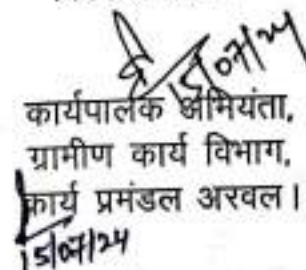 15/07/24
कार्यपालक अभियंता,
ग्रामीण कार्य विभाग,
कार्य प्रमंडल अरवल।
15/07/24